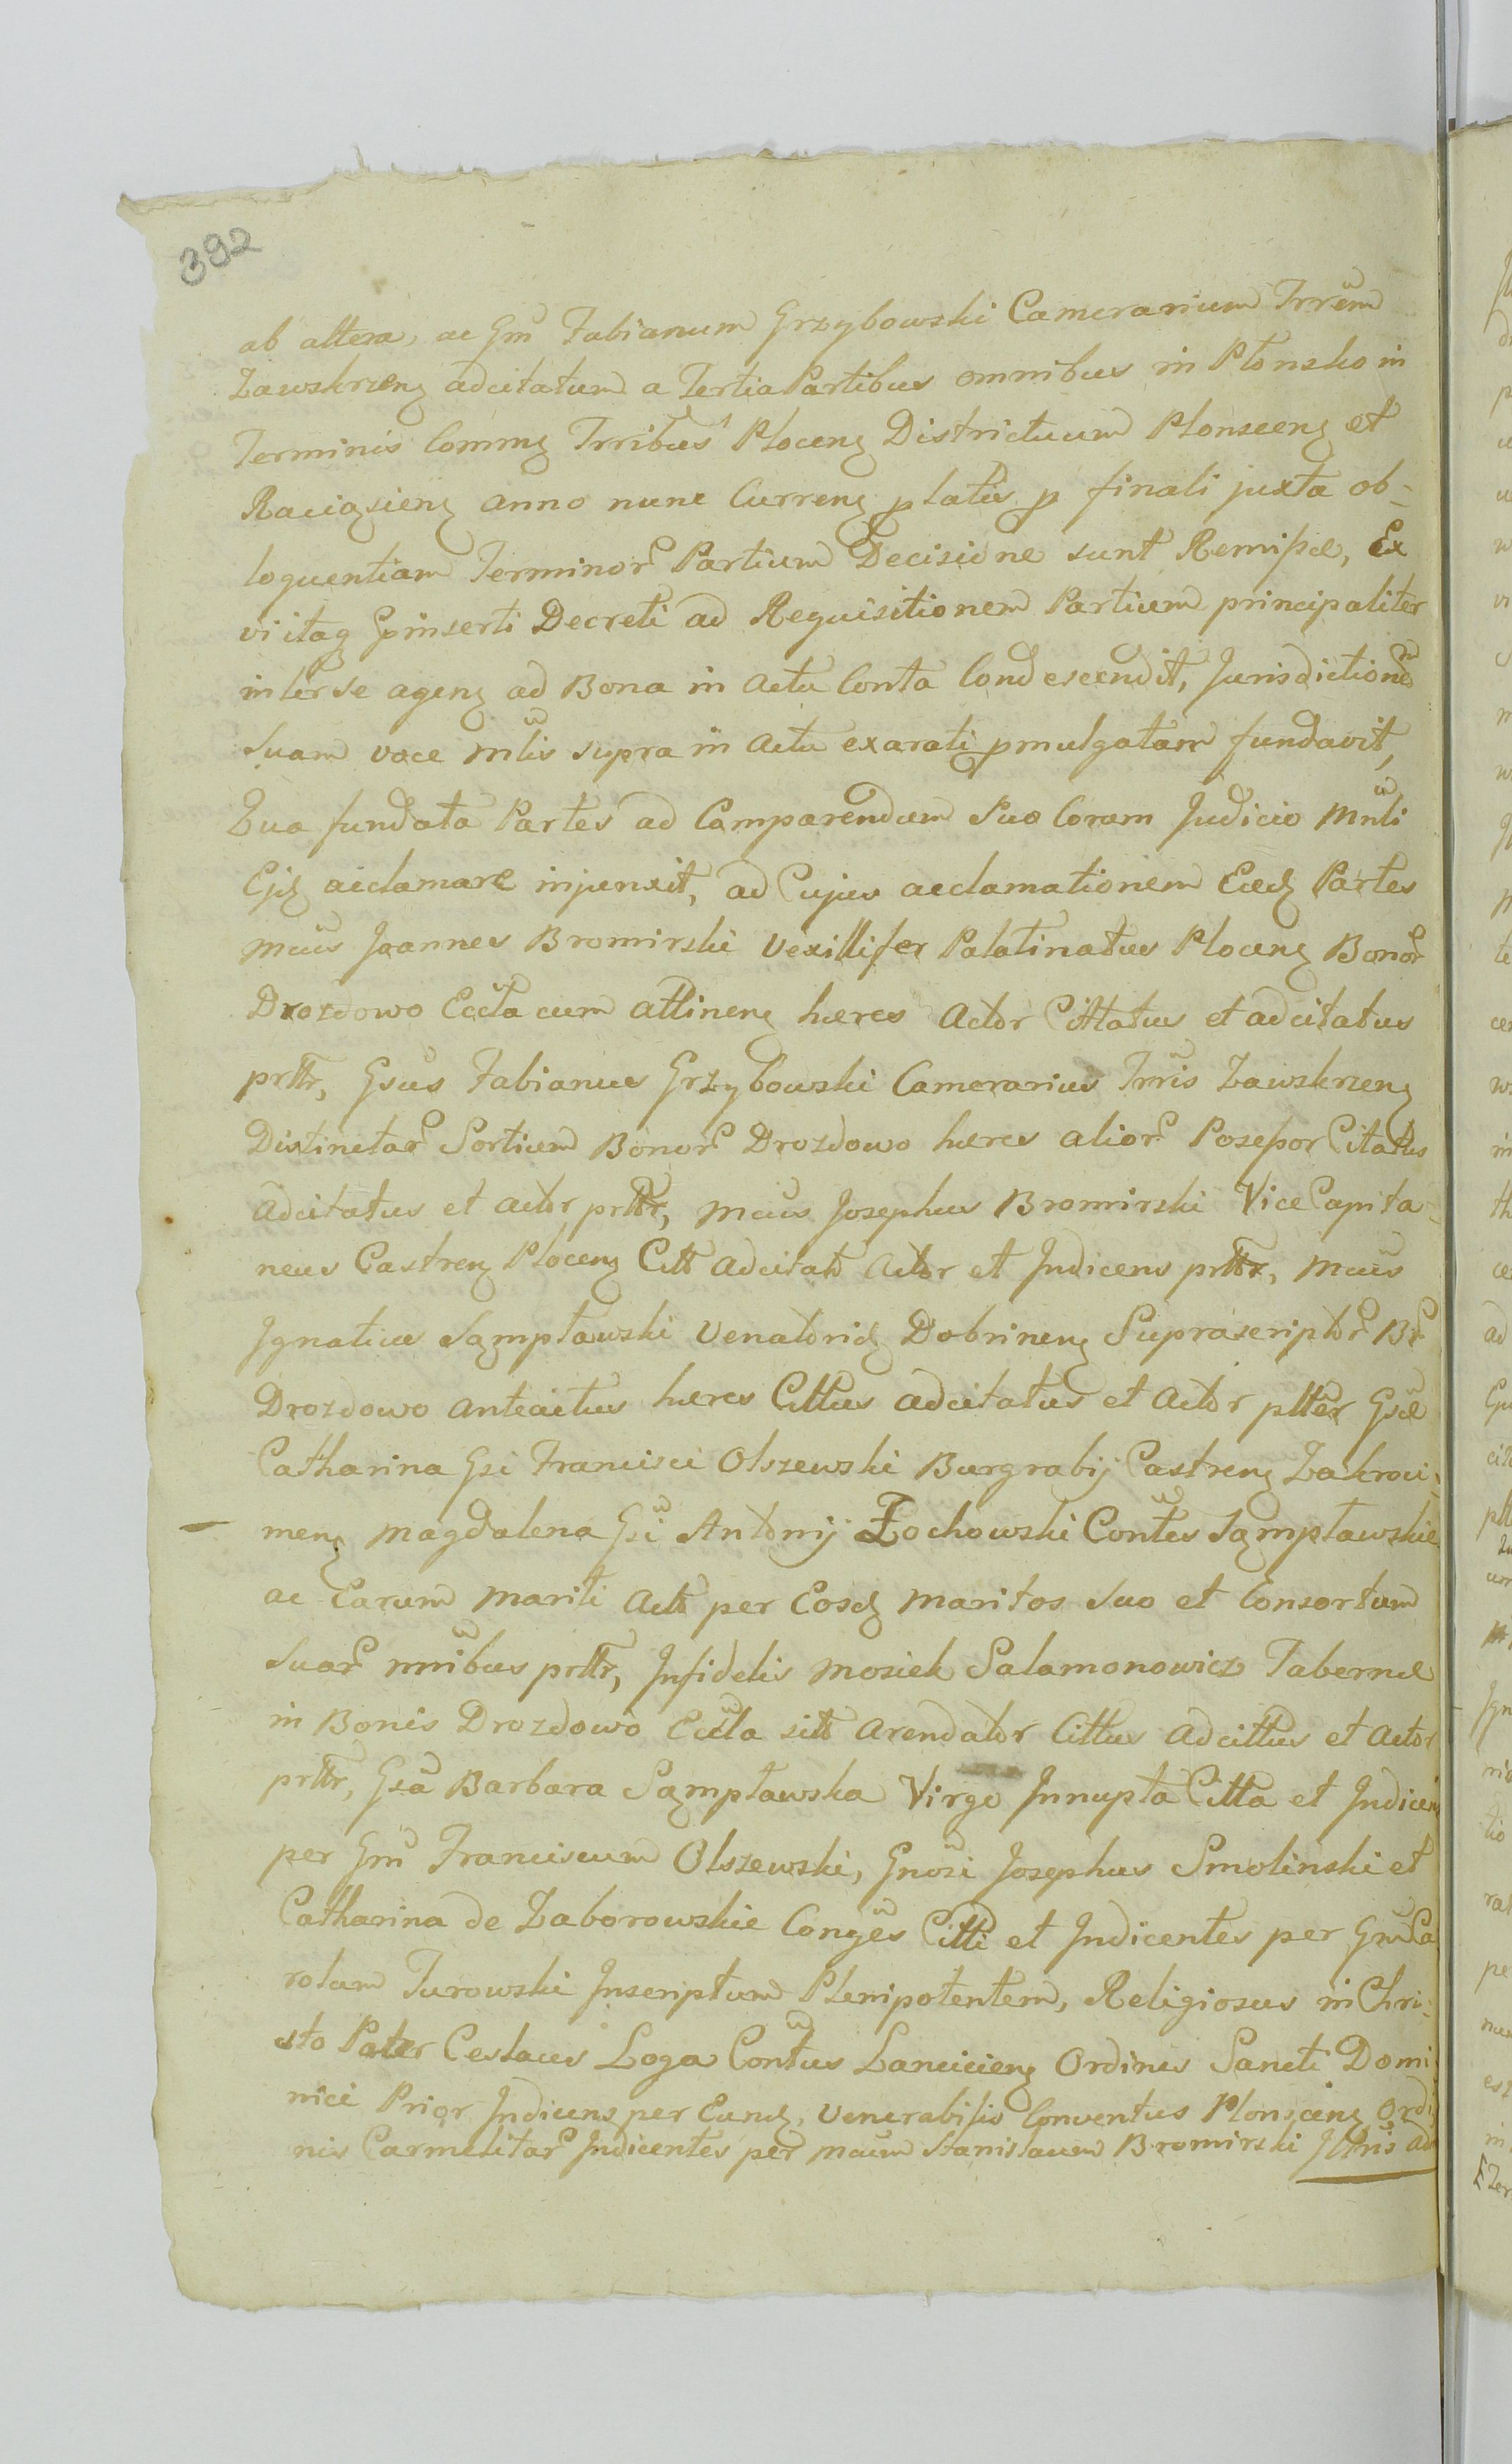 392
ab altera, ac Gm̃ Fabianum Grzybowski Camerarium Trrũm
Zawskrzenȝ adcitatum a Tertia Partibus omnibus in Płonsko in
Terminis Commȝ Trribus Plocenȝ Districtuum Plonscenȝ et
Raciązienȝ Anno nunc Currenȝ platis p finali juxta ob-
loquentiam Terminor Partium Decisione sunt Remissæ, Ex
vi itaq pinserti Decreti ad Requisitionem Partium principaliter
inter Se agenȝ ad Bona in Actu Conta Condescendit, Jurisdictionem
Suam voce mlis supra in Actu exarati pmulgatam fundavit,
Qua fundata Partes ad Comparendum Suo Coram Judicio Mnli
Ejȝ acclamare injunxit, ad Cujus acclamationem Eædȝ Partes
Mcus Joannes Bromirski Vexillifer Palatinatus Plocenȝ Bonor
Drozdowo Eccla cum attinenȝ hæres Actor Cittatus et adcitatus
prttr, Gsus Fabianus Grzybowski Camerarius Trris Zawskrzenȝ
Distinctar Sortium Bonor Drozdowo hæres alior Possessor Citatus
Adcitatus et actor prttr, Mcus Josephus Bromirski Vice Capita-
neus Castrenȝ Plocenȝ Citt Adcitats Actor et Indicens prttr, Mcus
Ignatius Sąmpławski Venatoridȝ Dobrinenȝ Suprascriptor Br
Drozdowo anteactus hæres Cittus adcitatus et Actor plter Gsæ
Catharina Gsi Francisci Olszewski Burgrabij Castrenȝ Zakroci-
menȝ Magdalena Gsi Antonij Żochowski Contes Sąmpławskie
ac Earum mariti Acts per Eosdȝ Maritos Suo et Consortum
Suar nnibus prttr, Infidelis Mosiek Salamonowicz Tabernæ
in Bonis Drozdowo Eccla sitt Arendator Cittus Adcittus et Actor
prttr, Gsa Barbara Sąmpławska Virgo Innupta Citta et Indicen
per Gm̃ Franciscum Olszewski, Gnosi Josephus Smolinski et
Catharina de Zaborowskie Conges Citti et Indicentes per Gm̃ Ca
rolum Turowski Inscriptum Plenipotentem, Religiosus in Chri-
sto Pater Ceslaus Loga Contus Lancicienȝ Ordinis Sancti Domi
nici Prior Indicens per Eundȝ, Venerabilis Conventus Plonscenȝ Ordi
nis Carmelitar Indicentes per Mcum Stanislaum Bromirski